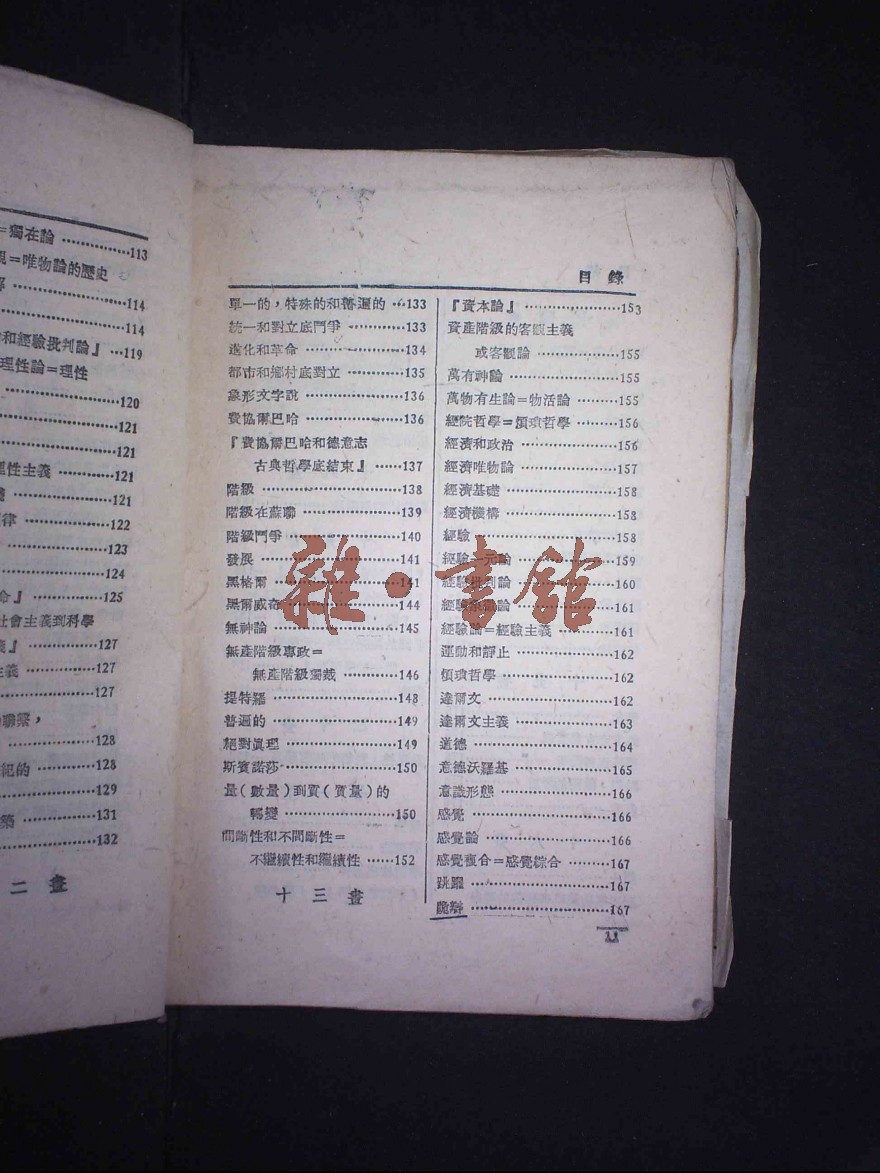 ＝獨在論 ………113
＝唯物論的歷史
………114
………114
和經驗批判論』 …119
理性論＝理性
………120
………121
………121
理性主義 ………121
………121
律 ………122
………123
………124
命』 ………125
社會主義到科學
義』 ………127
主義 ………127
………127
聯繫，
………128
的 ………128
………129
築 ………131
………132
二 畫
目 錄
單一的，特殊的和普遍的 …133
統一和對立底鬥爭 ………133
進化和革命 ………134
都市和鄉村底對立 ………135
象形文字說 ………136
費協爾巴哈 ………136
『費協爾巴哈和德意志
古典哲學底結束』 ……137
階級 ………138
階級在蘇聯 ………139
階級鬥爭 ………140
發展 ………141
黑格爾 ………141
黑爾威奇 ………144
無神論 ………145
無產階級專政＝
無產階級獨裁 ………146
提特羅 ………148
普遍的 ………149
絕對眞理 ………149
斯賓諾莎 ………150
量（數量）到質（質量）的
轉變 ………150
間斷性和不間斷性＝
不繼續性和繼續性 ……152
十 三 畫
『資本論』 ………153
資產階級的客觀主義
或客觀論 ………155
萬有神論 ………155
萬物有生論＝物活論 ………155
經院哲學＝煩瑣哲學 ………156
經濟和政治 ………156
經濟唯物論 ………157
經濟基礎 ………158
經濟機構 ………158
經驗 ………158
經驗一元論 ………159
經驗批判論 ………160
經驗象徵論 ………161
經驗論＝經驗主義 ………161
運動和靜止 ………162
煩瑣哲學 ………162
達爾文 ………162
達爾文主義 ………163
道德 ………164
意德沃羅基 ………165
意識形態 ………166
感覺 ………166
感覺論 ………166
感覺複合＝感覺綜合 ………167
跳躍 ………167
詭辯 ………167
11
雜·書館